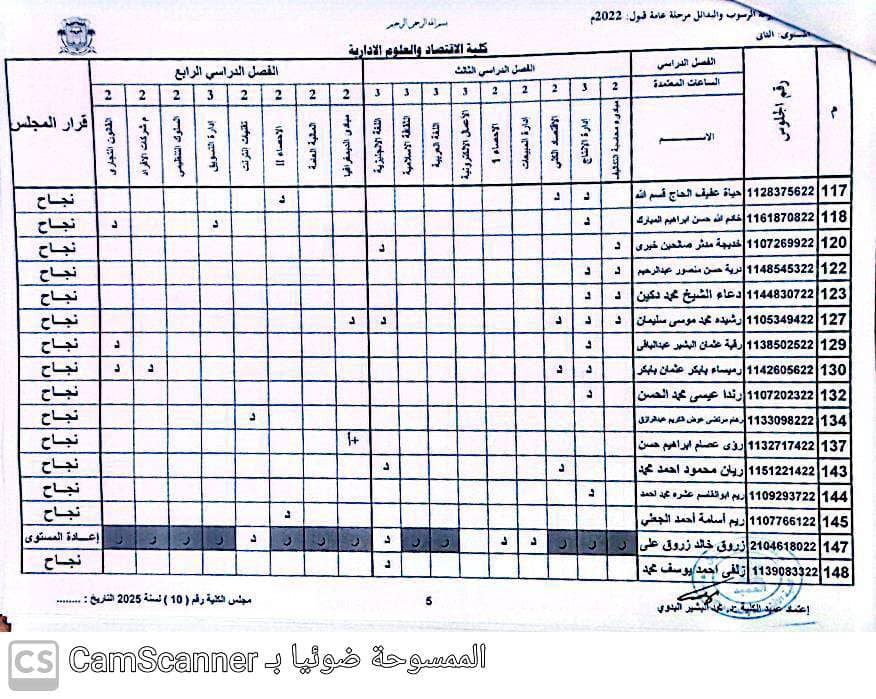 بسم الله الرحمن الرحيم
الرسوب والبدائل مرحلة عامة قبول: 2022م
كلية الاقتصاد والعلوم الادارية
م
رقم الجلوس
الفصل الدراسي
الساعات المعتمدة
الاســـــم
الفصل الدراسي الثالث
الفصل الدراسي الرابع
قرار المجلس
2 3 2 2 2 3 3 3 3 2 2 2 2 3 2 2 2
إدارة الانتاج
الاقتصاد الكلي
إدارة المبيعات
الاحصاء 1
الأعمال الالكترونية
اللغة العربية
الثقافة الاسلامية
اللغة الانجليزية
مبادئ الديمغرافيا
المالية العامة
الاحصاء II
تقنيات انترنت
إدارة التسويق
السلوك التنظيمي
م شركات الافراد
القانون التجارى
117 1128375622 حياة عفيف الحاج قسم الله د د د نجــاح
118 1161870822 خادم الله حسن ابراهيم المبارك د د د نجــاح
120 1107269922 خديجة مدثر صالحين خيرى د د نجــاح
122 1148545322 درية حسن منصور عبدالرحيم د د نجــاح
123 1144830722 دعاء الشيخ محمد دكين د د نجــاح
127 1105349422 رشيده محمد موسى سليمان د د د د د نجــاح
129 1138502522 رقية عثمان البشير عبدالباقى د د نجــاح
130 1142605622 رميساء بابكر عثمان بابكر د د د د نجــاح
132 1107202322 رندا عيسى محمد الحسن د نجــاح
134 1133098222 رهام مرتضى عوض الكريم عبدالرازق د نجــاح
137 1132717422 رؤى عصام ابراهيم حسن أ+ نجــاح
143 1151221422 ريان محمود احمد محمد د د نجــاح
144 1109293722 ريم ابوالقاسم عشره محمد احمد د نجــاح
145 1107766122 ريم أسامة أحمد الجعلي د نجــاح
147 2104618022 زروق خالد زروق على ر ر ر د د ر ر د ر ر ر د ر ر ر ر إعــادة المستوى
148 1139083322 زلفى احمد يوسف محمد د نجــاح
إعتماد عميد الكلية :د. محمد البشير البدوي
5
مجلس الكلية رقم ( 10 ) لسنة 2025 التاريخ : ........
الممسوحة ضوئيا بـ CamScanner
CS